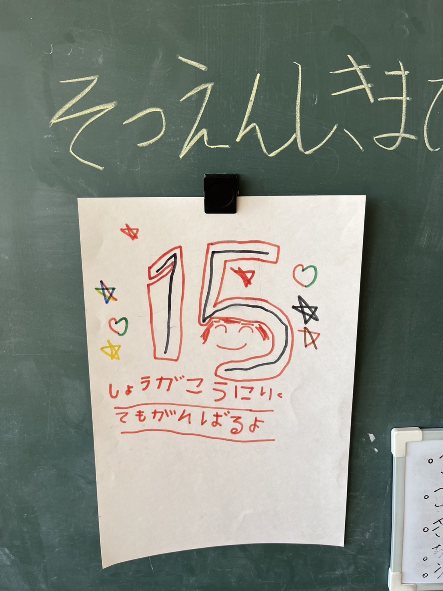 そつえんしきま
15
しょうがこうにいっ
てもがんばるよ